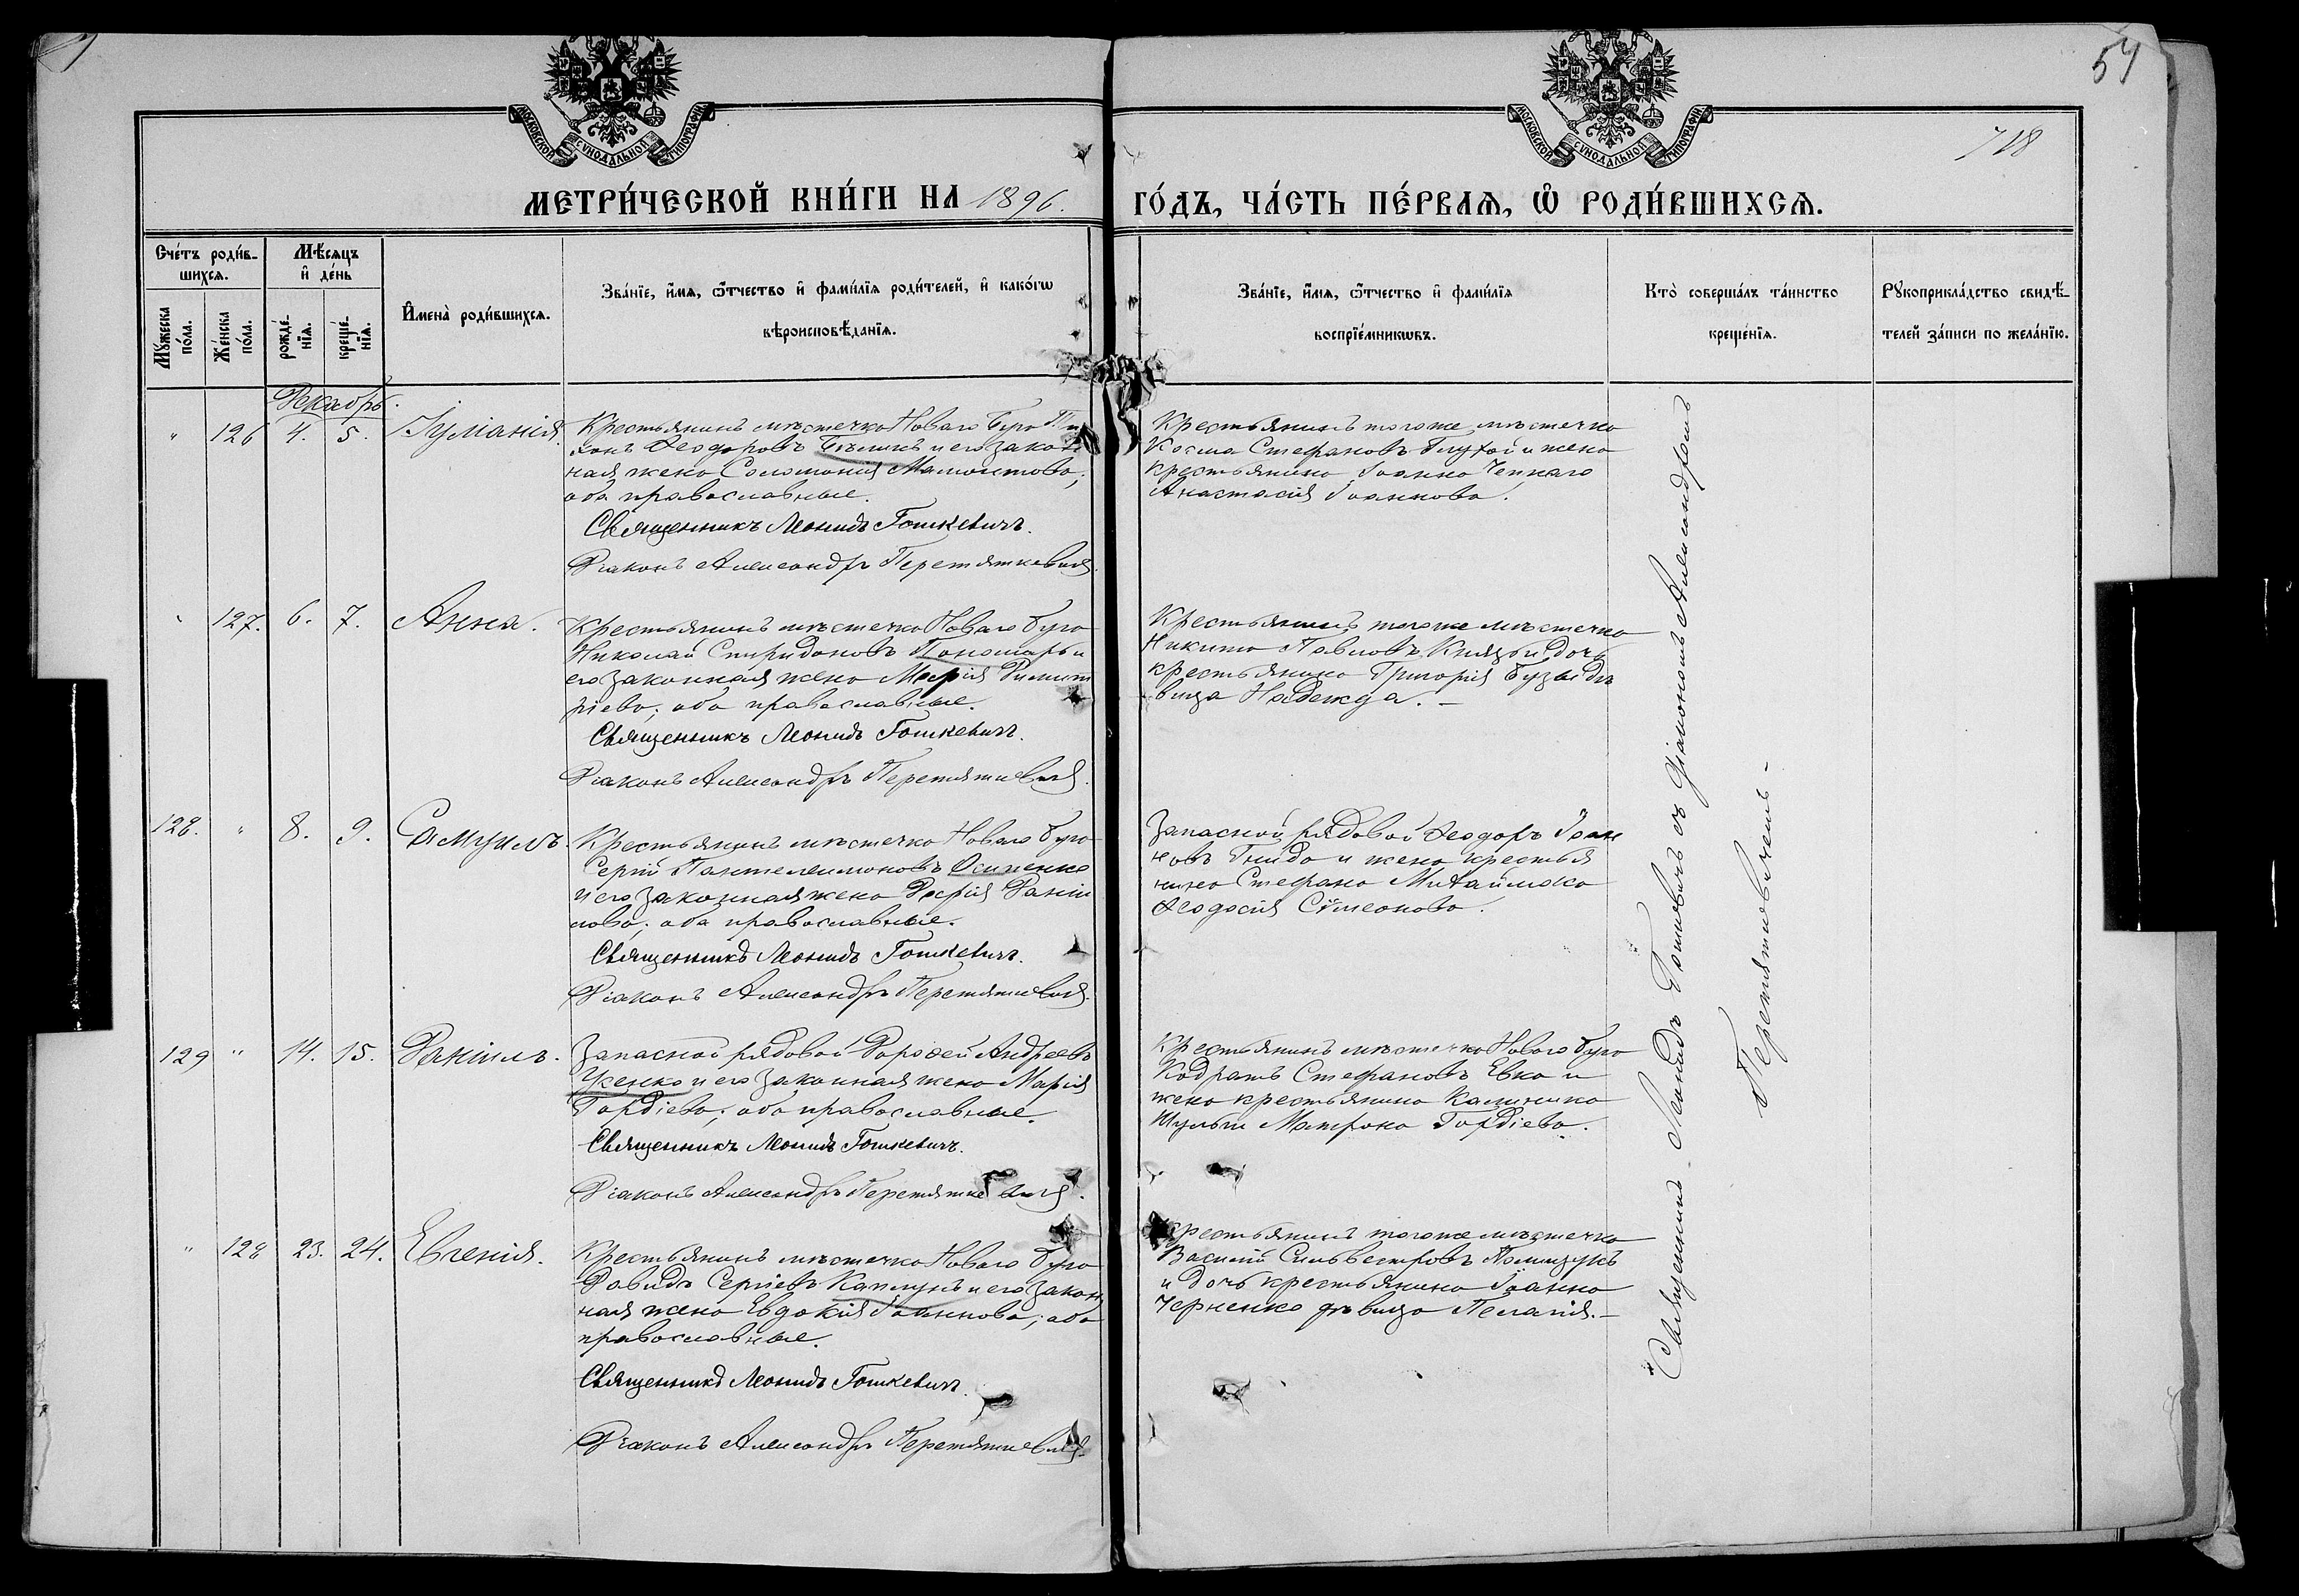 54
718
МОСКОВСКОЙ СѴНОДАЛЬНОЙ ТИПОГРАФІИ
МОСКОВСКОЙ СѴНОДАЛЬНОЙ ТИПОГРАФІИ
МЕТРИ́ЧЕСКОЙ КНИ́ГИ НА 1896. ГО́ДЪ, ЧА́СТЬ ПЕ́РВАѦ, Ѽ РОДИ́ВШИХСѦ.
Сче́тъ роди́в-
шихсѧ.
Мꙋ́жеска по́ла.
Же́нска по́ла.
Мѣ́сѧцъ
и҆ де́нь
рожде́-
нїѧ.
креще́-
нїѧ.
И҆мена̀ роди́вшихсѧ.
Зва́нїе, и҆́мѧ, ѻ҆́тчество и҆ фамѝлїѧ роди́телей, и҆ како́гѡ
вѣроисповѣ́данїѧ.
Зва́нїе, и҆́мѧ, ѻ҆́тчество и҆ фами́лїѧ
воспрїе́мникѡвъ.
Кто̀ соверша́лъ та́инство
креще́нїѧ.
Рꙋкоприкла́дство свидѣ́-
телей за́писи по жела́нїю.
Декабрь.
" 126 4. 5. Іуліанія.
Крестьянинъ мѣстечка Новаго Буга Ти
хонъ Ѳеодоровъ Бѣликъ и его закон
ная жена Соломонія Мамонтова;
оба православные.
Священникъ Леонидъ Гошкевичъ.
Діаконъ Александръ Перетяткевичъ.
Крестьянинъ тогоже мѣстечка
Косма Стефановъ Глухой и жена
крестьянина Іоанна Чепкаго
Анастасія Іоаннова.
" 127. 6. 7. Анна.
Крестьянинъ мѣстечка Новаго Буга
Николай Спиридоновъ Пономарь и
его законная жена Марія Димит
ріева; оба православные.
Священникъ Леонидъ Гошкевичъ.
Діаконъ Александръ Перетяткевичъ.
Крестьянинъ тогоже мѣстечка
Никита Павловъ Князь и дочь
крестьянина Григорія Бузы дѣ
вица Надежда. –
128. " 8. 9. Самуилъ.
Крестьянинъ мѣстечка Новаго Буга
Сергій Пантелеимоновъ Осипенко
и его законная жена Дарія Даніи
лова; оба православные.
Священникъ Леонидъ Гошкевичъ.
Діаконъ Александръ Перетяткевичъ.
Запасной рядовой Ѳеодоръ Іоан
новъ Гнида и жена крестья
нина Стефана Михайлюка
Ѳеодосія Сѵмеонова.
129 " 14. 15. Даніилъ.
Запасной рядовой Дороѳей Андреевъ
Усенко и его законная жена Марія
Гордіева; оба православные.
Священникъ Леонидъ Гошкевичъ.
Діаконъ Александръ Перетяткевичъ.
Крестьянинъ мѣстечка Новаго Буга
Кодратъ Стефановъ Евко и
жена крестьянина Калиника
Шульги Матрона Гордіева.
" 128 23. 24. Евгенія.
Крестьянинъ мѣстечка Новаго Буга
Давидъ Сергіевъ Каплунъ и его закон
ная жена Евдокія Іоаннова; оба
православные.
Священникъ Леонидъ Гошкевичъ.
Діаконъ Александръ Перетяткевичъ.
Крестьянинъ тогоже мѣстечка
Василій Сильвестровъ Полищукъ
и дочь крестьянина Іоанна
Черненко дѣвица Пелагія. –
Священникъ Леонидъ Гошкевичъ съ діакономъ Александромъ
Перетяткевичемъ –